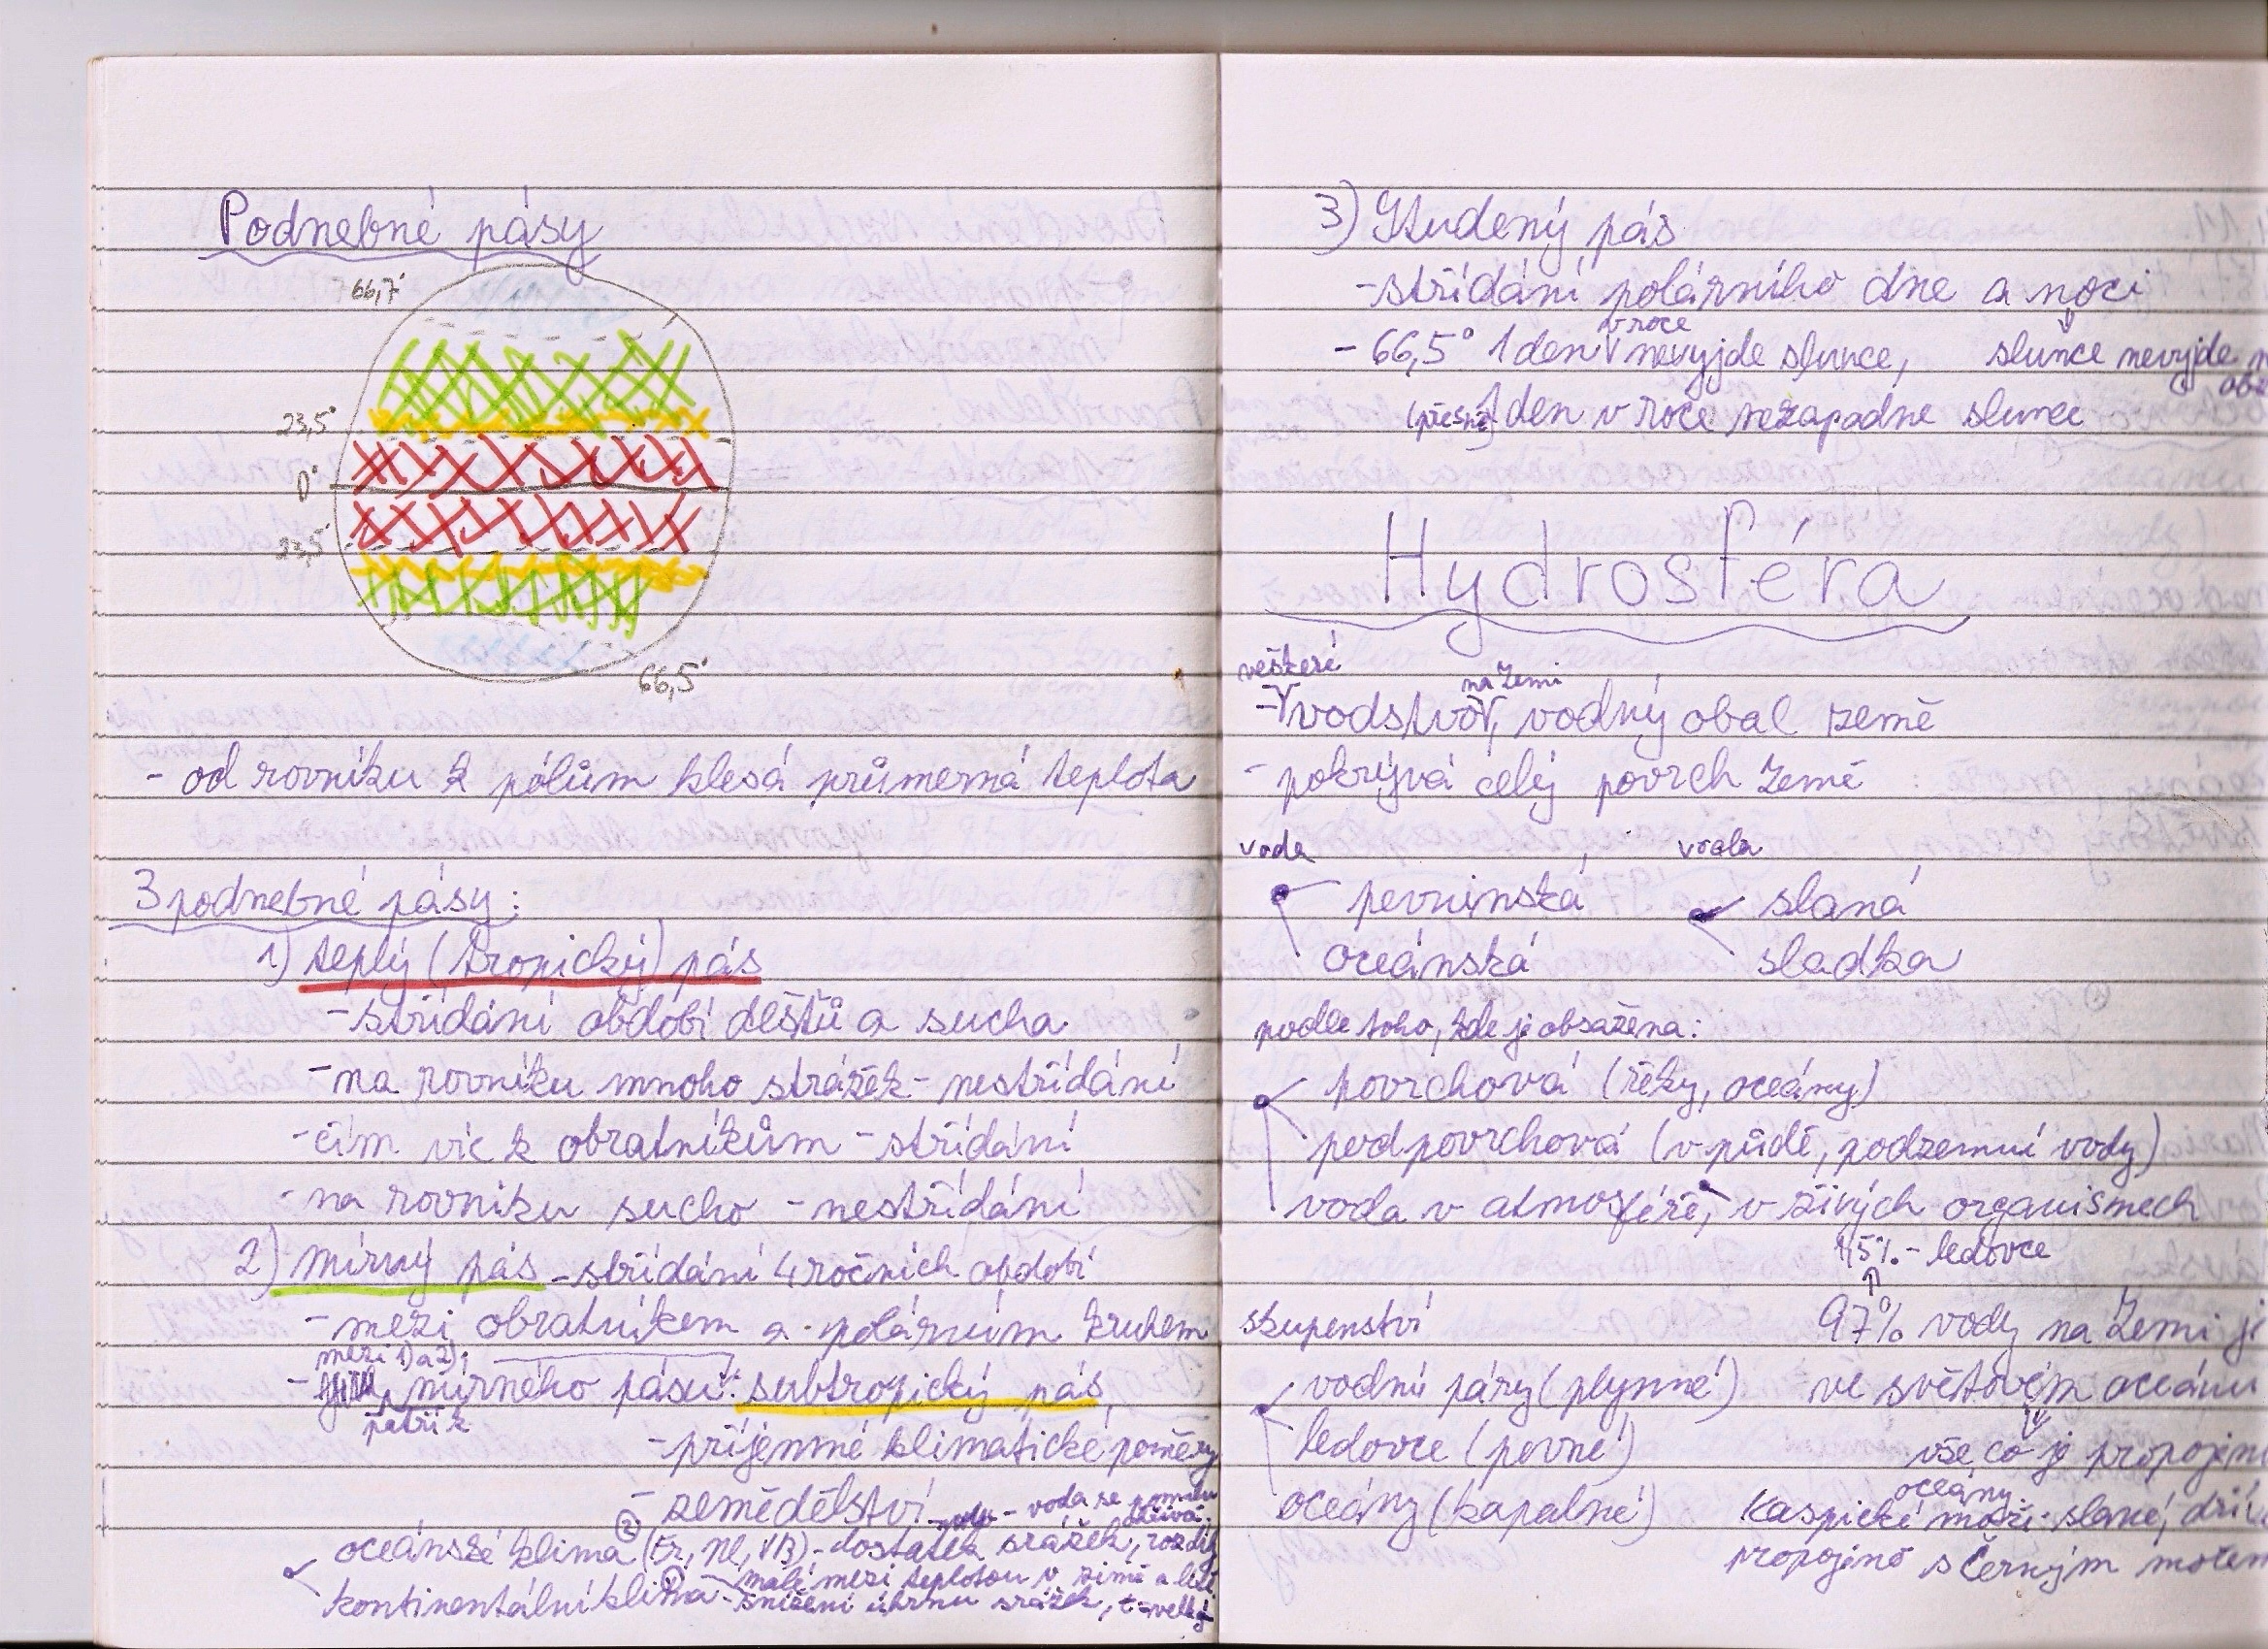 Podnebné pásy
66,7°
23,5°
0°
23,5°
66,5°
- od rovníku k pólům klesá průmerná teplota
3 podnebné pásy:
1) teplý (tropický) pás
- střídání období dešťů a sucha
- na rovníku mnoho strážek - nestřídání
- čím víc k obratníkům - střídání
- na rovníku sucho - nestřídání
2) mírný pás - střídání 4 ročních období
- mezi obratníkem a polárním kruhem
mezi 1) a 2);
- mírného pásu: subtropický pás,
patří k
- příjemné klimatické poměry
- zemědělství - voda se pomalu
oceánské klima (Fr, Nl, VB) - dostatek srážek, rozdíly
malé mezi teplotou v zimě a létě
kontinentální klima - snížení úhrnu srážek, t = velký
3) Studený pás
- střídání polárního dne a noci
v roce
- 66,5° 1 den nevyjde slunce, slunce nevyjde
(přesně) 1 den v roce nezapadne slunce
Hydrosféra
veškeré na Zemi
- vodstvo, vodný obal země
- pokrývá celý povrch Země
voda voda
pevninská slaná
oceánská sladka
podle toho, kde je obsažena:
povrchová (řeky, oceány)
podpovrchová (v půdě, podzemní vody)
voda v atmosféře, v živých organismech
- ledovce
skupenství 97% vody na Zemi je
vodní páry (plynné) ve světovém oceánu
ledovce (pevné) vše, co je propojen
oceány
oceány (kapalné) Kaspické moře: slané, dří
propojeno s Černým mořem